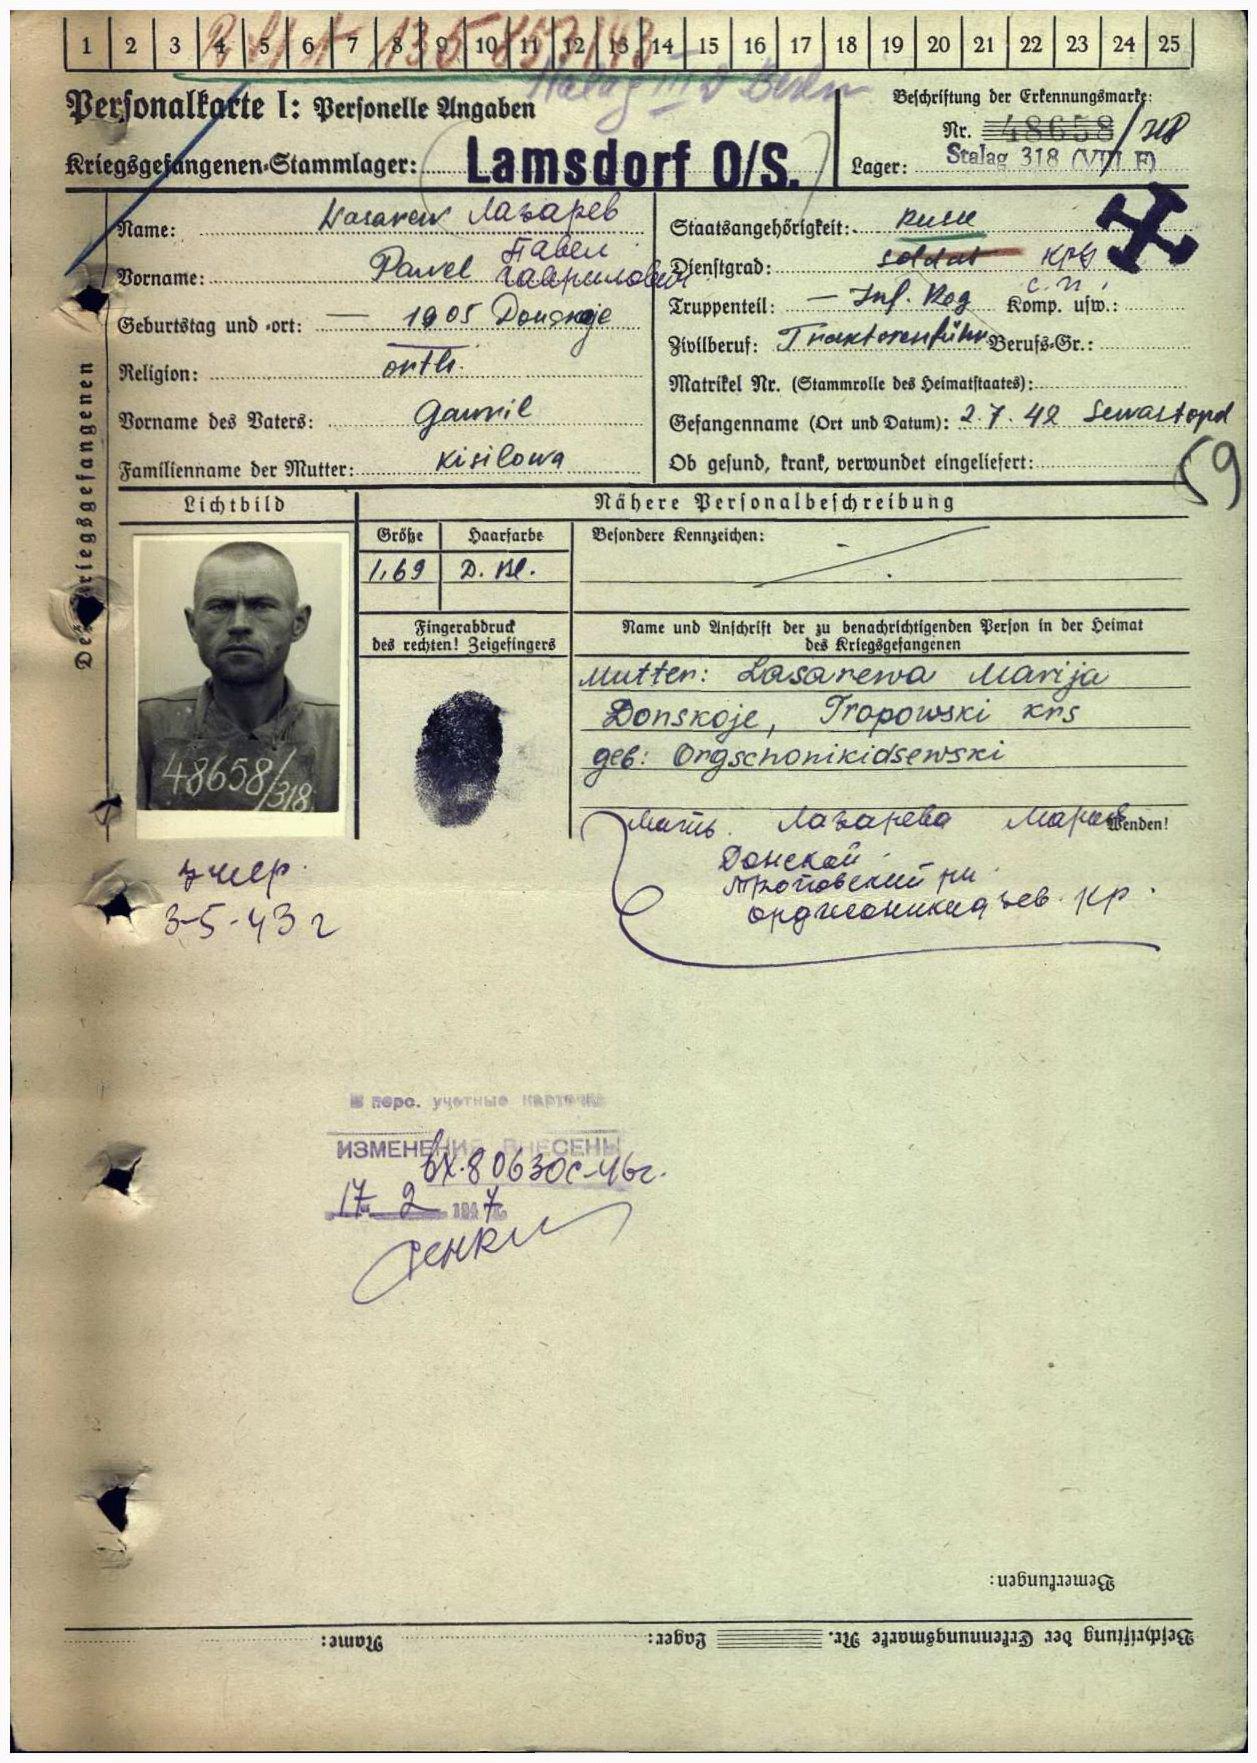 1 2 3 4 5 6 7 8 9 10 11 12 13 14 15 16 17 18 19 20 21 22 23 24 25
Stalag III D Berlin
Personalkarte I: Personelle Angaben
Kriegsgefangenen-Stammlager: Lamsdorf O/S.
Beschriftung der Erkennungsmarke:
Nr. 48658/318
Lager: Stalag 318 (VIII F)
Des Kriegsgefangenen
Name: Lasarew Лазарев
Vorname: Pawel Павел Гаврилович
Geburtstag und -ort: — 1905 Donskoje
Religion: orth.
Vorname des Vaters: Gawril
Familienname der Mutter: Kisilowa
Staatsangehörigkeit: Russe
Dienstgrad: Soldat кр-ц
Truppenteil: — Inf. Reg с.п. Komp. usw.:
Zivilberuf: Traktorenführer Berufs-Gr.:
Matrikel Nr. (Stammrolle des Heimatstaates):
Gefangennahme (Ort und Datum): 2.7.42 Sewastopol
Ob gesund, krank, verwundet eingeliefert:
59
Lichtbild
48658/318
Nähere Personalbeschreibung
Größe Haarfarbe Besondere Kennzeichen:
1,69 D. Bl.
Fingerabdruck
des rechten! Zeigefingers
Name und Anschrift der zu benachrichtigenden Person in der Heimat
des Kriegsgefangenen
Mutter: Lasarewa Marija
Donskoje, Tropowski krs
geb: Orgschonikidsewski
Wenden!
Мать. Лазарева Мария
Донской
Троповский рн
орджоникидзев. кр.
умер
3-5-43 г
В перс. учетные карточки
ИЗМЕНЕНИЯ ВНЕСЕНЫ
вх. 80630с-46г.
17 2 1947
Bemerkungen:
Beschriftung der Erkennungsmarke Nr. Lager: Name: